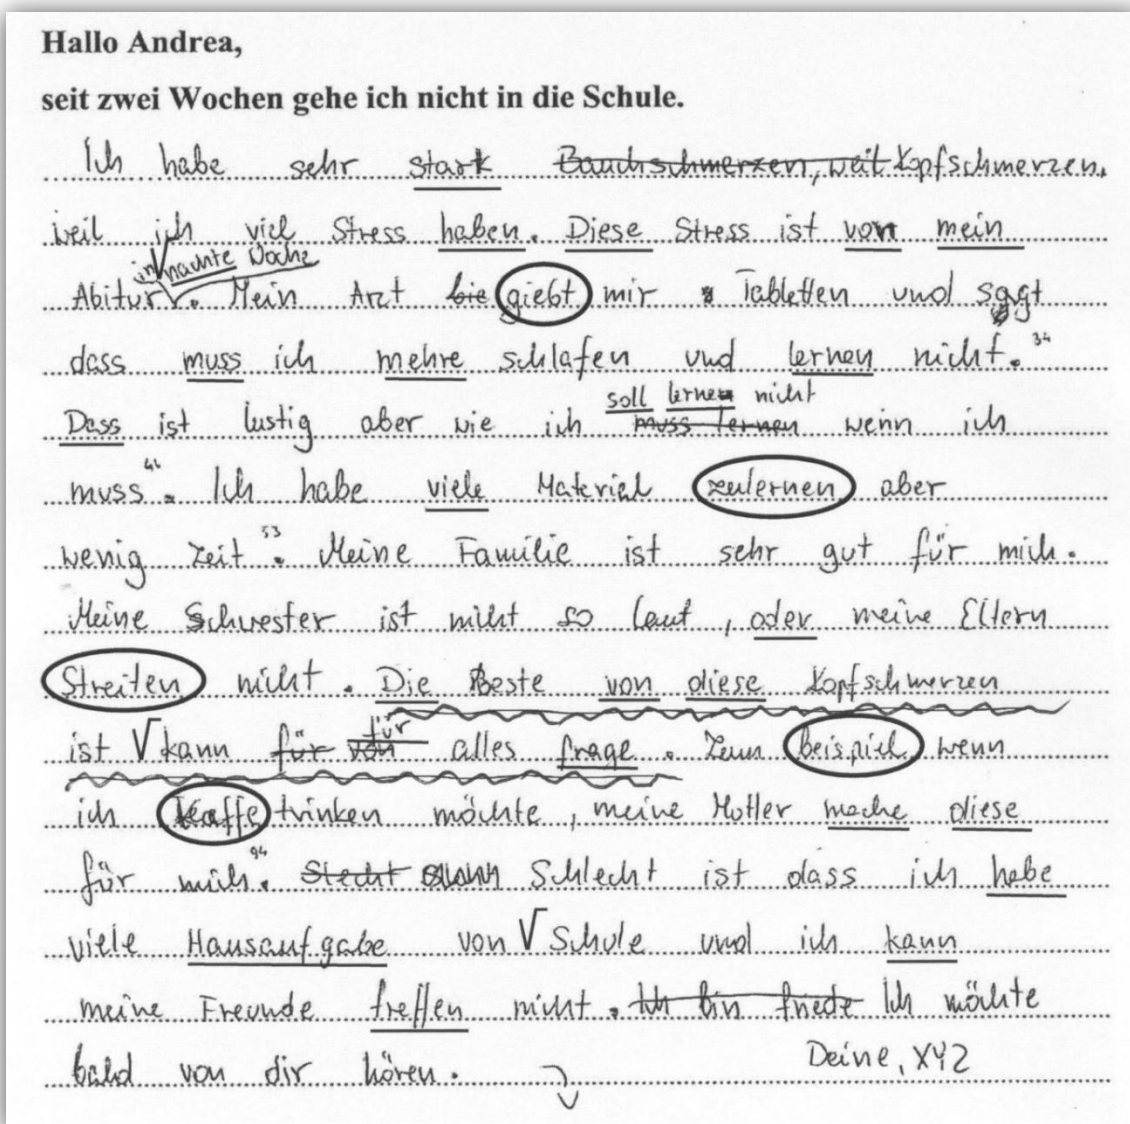 Hallo Andrea,
seit zwei Wochen gehe ich nicht in die Schule.
Ich habe sehr stark Bauchschmerzen, weil Kopfschmerzen,
weil ich viel Stress haben. Diese Stress ist von mein
in nachte Woche
Abitur. Mein Arzt bie giebt mir Tabletten und sagt
dass muss ich mehre schlafen und lernen nicht. 34
soll lernen nicht
Dass ist lustig aber wie ich muss lernen wenn ich
muss 44. Ich habe viele Material zulernen aber
wenig Zeit 53. Meine Familie ist sehr gut für mich.
Meine Schwester ist nicht so laut, oder meine Eltern
Streiten nicht. Die Beste von diese Kopfschmerzen
für
ist √ kann für von alles frage. Zum beispiel wenn
ich Kaffe trinken möchte, meine Motter mache diese
für mich 94. Stecht Schlecht ist dass ich habe
viele Hausaufgabe von √ Schule und ich kann
meine Freunde treffen nicht. Ich bin friede Ich möchte
bald von dir hören.
Deine, XYZ